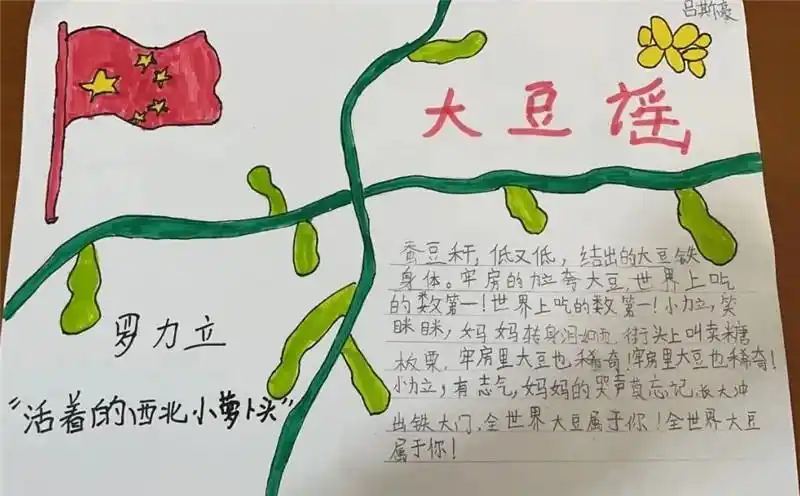 吕斯豪
大豆谣
蚕豆秆，低又低，结出的大豆铁
身体。牢房的力立夸大豆，世界上吃
的数第一！世界上吃的数第一！小力立，笑
眯眯，妈妈转身泪如雨，街头上叫卖糖
板栗，牢房里大豆也稀奇！牢房里大豆也稀奇！
小力立，有志气，妈妈的哭声莫忘记，长大冲
出铁大门，全世界大豆属于你！全世界大豆
属于你！
罗力立
“活着的西北小萝卜头”